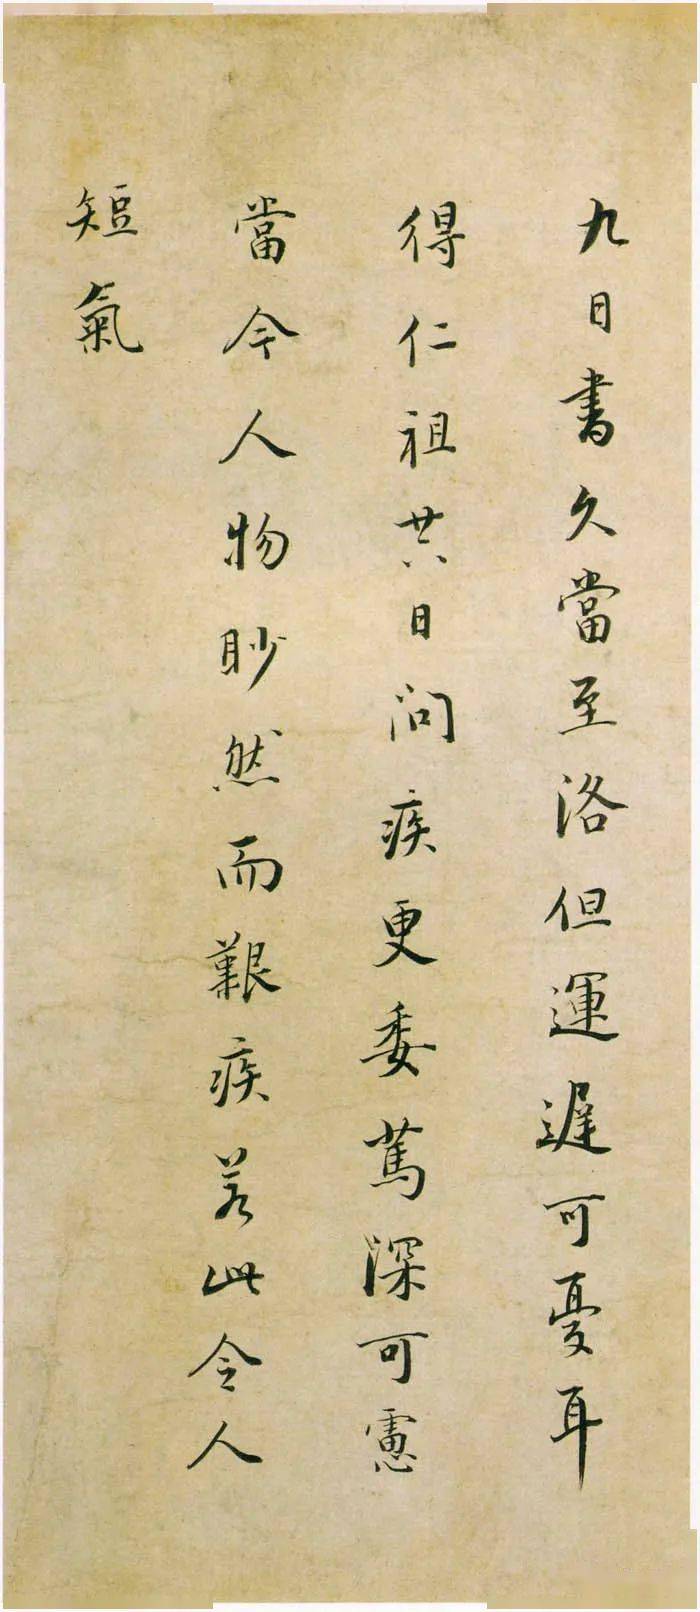 九日書久當至洛但運遲可憂耳
得仁祖廿六日問疾更委篤深可慮
當今人物眇然而艱疾若此令人
短氣